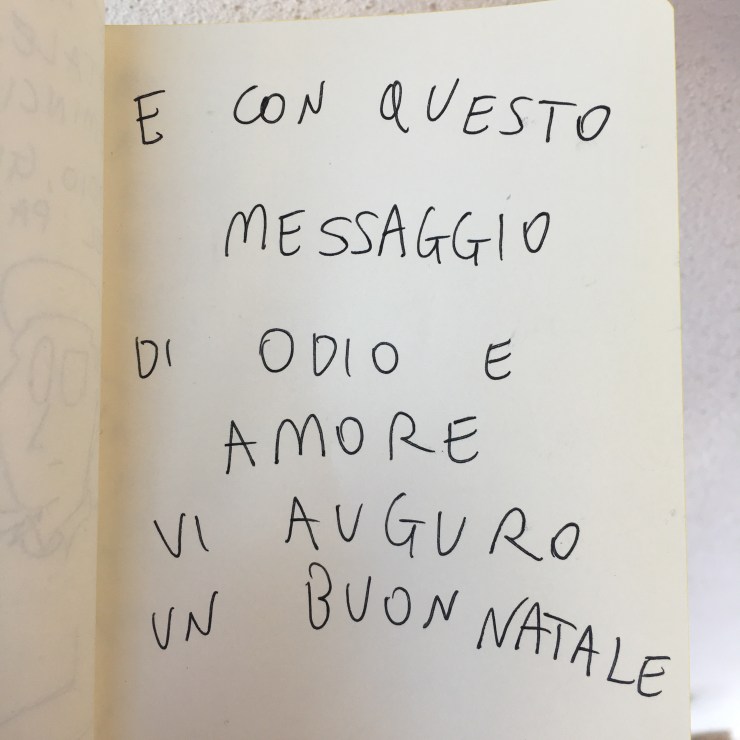 E CON QUESTO
MESSAGGIO
DI ODIO E
AMORE
VI AUGURO
UN BUON NATALE